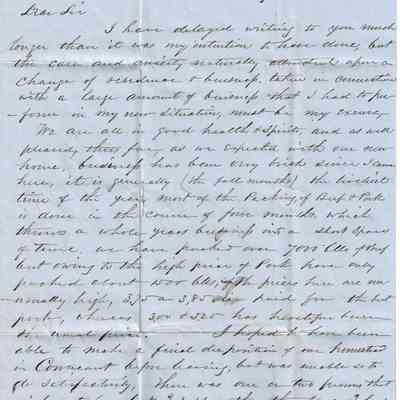 Dear Sir
I have delayed writing to you much
longer than it was my intention to have done, but
the care and anxiety naturally attendant upon a
Change of residence & business, taken in connection
with a large amount of business that I had to per-
-form in my new situation, must be my excuse,
We are all in good health & spirits, and as well
pleased, thus far, as we expected with our new
home, business has been very brisk since I came
here, it is generally (the fall months) the briskest
time of the year, most of the Packing of Beef & Pork
is done in the course of four months, which
throws a whole years business into a short space
of time, we have packed over 7000 bbls of Beef
but owing to the high price of Pork have only
packed about 1000 bbls, the prices here are un-
usually high, 3,75 a 3,85 paid for the best
pork, whereas 300 & 325 has heretofore been
the usual price. I hoped to have been
able to make a final disposition of our homestead
in Conneaut before leaving, but was unable to
do satisfactorily. There was one or two persons that